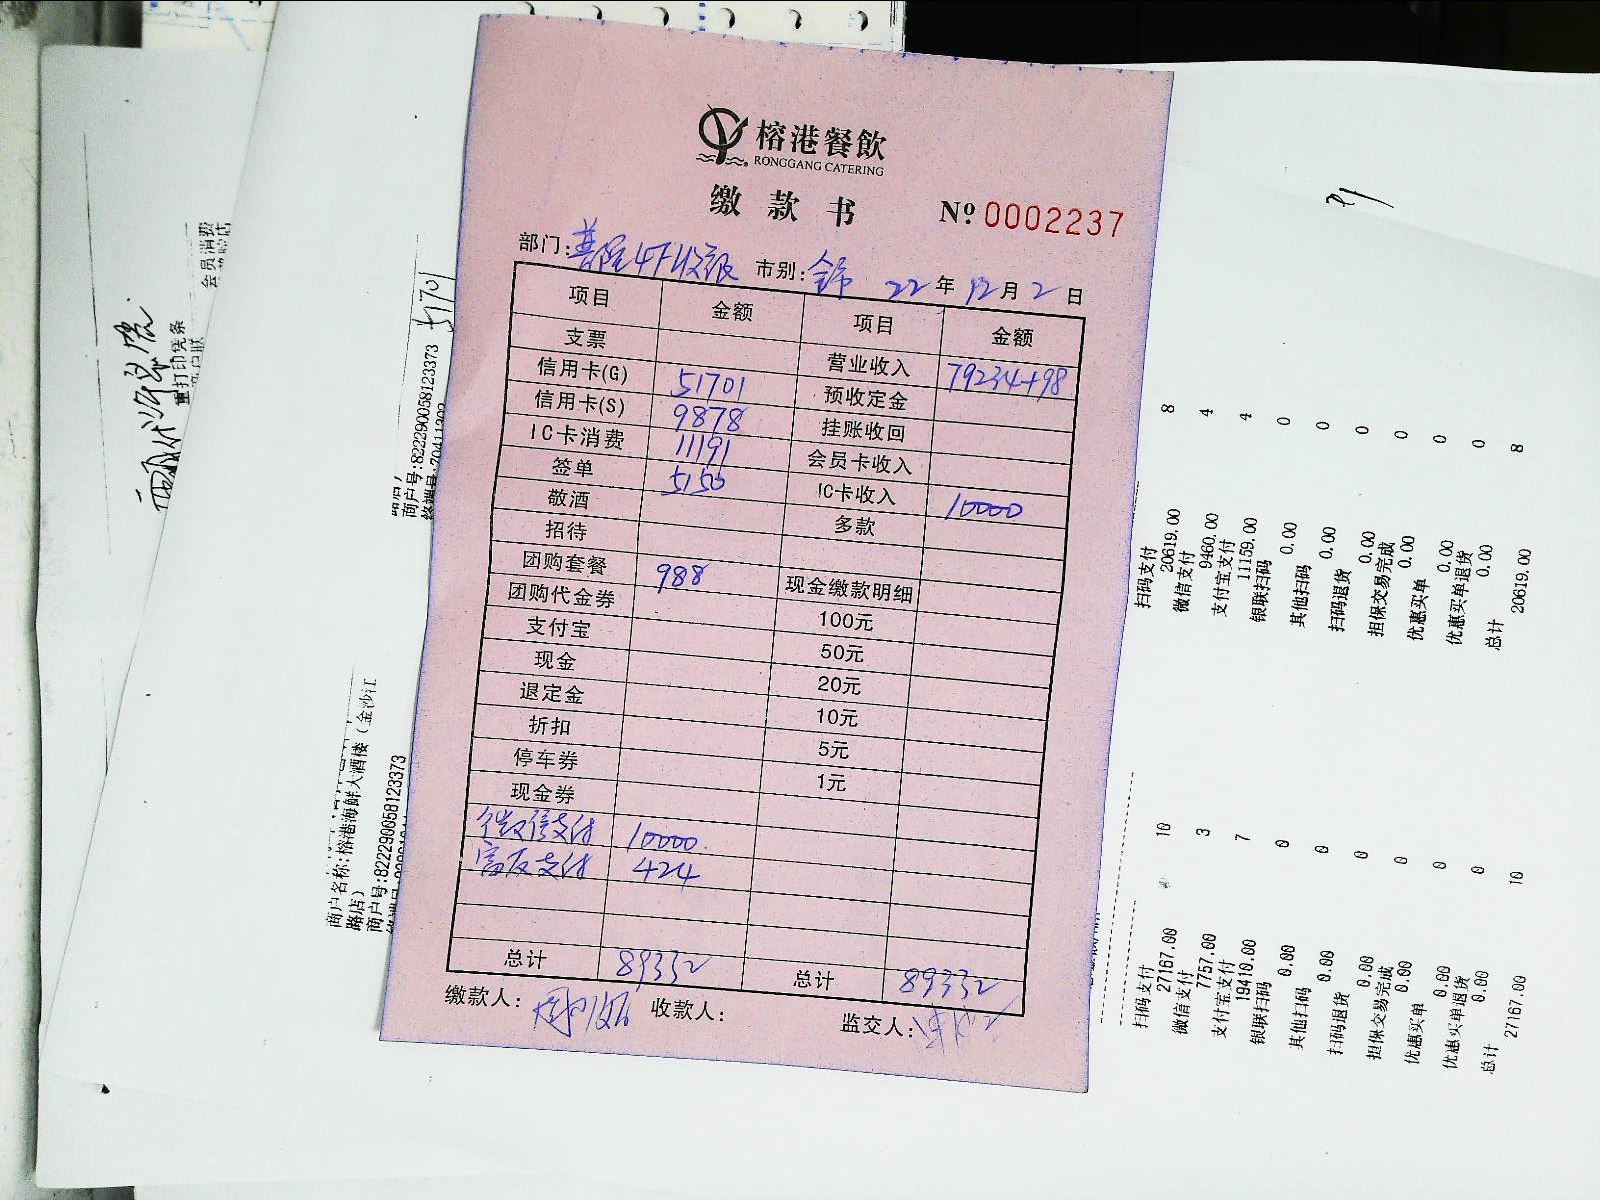 榕港餐飲
RONGGANG CATERING
缴款书 № 0002237
部门: 4F收银 市别: 全市 22年12月2日
项目 金额 项目 金额
支票 营业收入 79234+98
信用卡(G) 51701 预收定金
信用卡(S) 9878 挂账收回
IC卡消费 11191 会员卡收入
签单 5150 IC卡收入 10000
敬酒 多款
招待
团购套餐 988 现金缴款明细
团购代金券 100元
支付宝 50元
现金 20元
退定金 10元
折扣 5元
停车券 1元
现金券
微信支付 10000.
富友支付 424
总计 89332 总计 89332
缴款人: 收款人: 监交人:
会员消费
重打印凭条
商户联
51701
商户号:822290058123373
商户名称:榕港海鲜大酒楼(金沙江
路店)
商户号:822290058123373
扫码支付 8
20619.00
微信支付 4
9460.00
支付宝支付 4
11159.00
银联扫码 0
0.00
其他扫码 0
0.00
扫码退货 0
0.00
担保交易完成 0
0.00
优惠买单 0
0.00
优惠买单退货 0
0.00
总计 8
20619.00
扫码支付 10
27167.00
微信支付 3
7757.00
支付宝支付 7
19410.00
银联扫码 0
0.00
其他扫码 0
0.00
扫码退货 0
0.00
担保交易完成 0
0.00
优惠买单 0
0.00
优惠买单退货 0
0.00
总计 10
27167.00